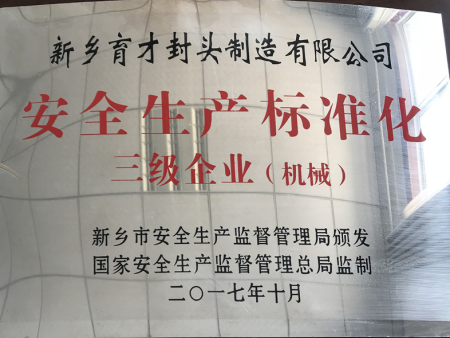 新乡育才封头制造有限公司
安全生产标准化
三级企业（机械）
新乡市安全生产监督管理局颁发
国家安全生产监督管理总局监制
二〇一七年十月